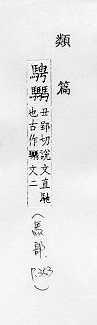 類篇
騁
丑郢切說文直馳
也古作 文二
(馬部 P.363)